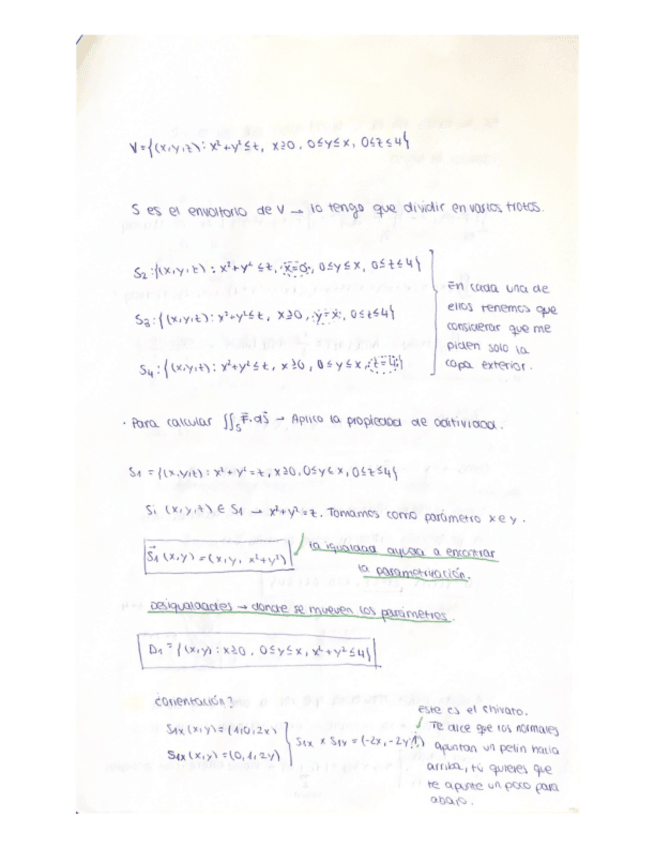 V={(x,y,z): x²+y²≤z, x≥0, 0≤y≤x, 0≤z≤4}
S es el envoltorio de V → lo tengo que dividir en varios trozos.
S₂:{(x,y,z): x²+y²≤z, x=0, 0≤y≤x, 0≤z≤4}
S₃:{(x,y,z): x²+y²≤z, x≥0, y=x, 0≤z≤4}
S₄:{(x,y,z): x²+y²≤z, x≥0, 0≤y≤x, z=4}
En cada una de
ellos tenemos que
considerar que me
piden solo la
capa exterior.
· Para calcular ∬ₛ F⃗·dS⃗ → Aplico la propiedad de aditividad.
S₁ = {(x,y,z): x²+y²=z, x≥0, 0≤y≤x, 0≤z≤4}
Si (x,y,z) ∈ S₁ → x²+y²=z. Tomamos como parámetro x e y.
S⃗₁(x,y)=(x,y, x²+y²)
la igualdad ayuda a encontrar
la parametrización.
Desigualdades → donde se mueven los parámetros.
D₁={(x,y): x≥0, 0≤y≤x, x²+y²≤4}
¿orientación?
S₁x(x,y)=(1,0,2x)
S₁x(x,y)=(0,1,2y)
S₁x × S₁y = (-2x,-2y,1)
este es el chivato.
Te dice que los normales
apuntan un pelín hacia
arriba, tú quieres que
te apunte un poco para
abajo.